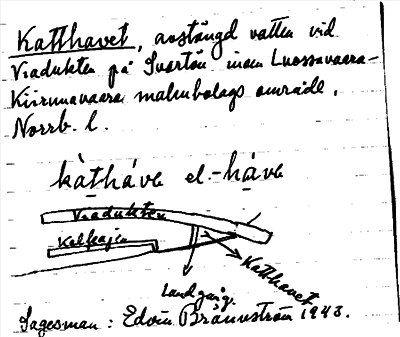 Katthavet, avstängd vatten vid
Viadukten på Svartön inom Luossavaara-
Kiirunavaara malmbolags område,
Norrb. l.
kàtháve el. -háve
Viadukten
Kolkajen
Landgång.
Katthavet
Sagesman: Edvin Brännström 1943.